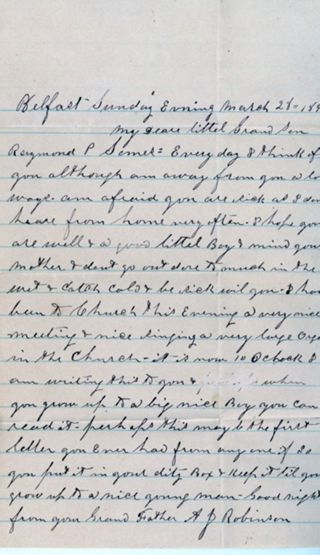 Belfast Sunday Evning March 28= 189
My deare littel Grand Son
Raymond P Somes= Every day I think of
you although am away from you a lo
ways. am afraid you are sick as I don
heare from home very often. I hope you
are well & a good littel Boy & mind your
Mother & dont go out dore to much in the
wet & catch cold & be sick wil you- I hav
been to Church this Evening a very nice
meeting & nice singing a very large Orga
in the Church- it is now 10 Oclock I
am writing this to you & when
you grow up to a big nice Boy you can
read it- perhaps this may b the first
letter you Ever had from any one if so
you put it in your ditty Box & keep it til you
grow up to a nice young man- Good night
from your Grand Father A J Robinson